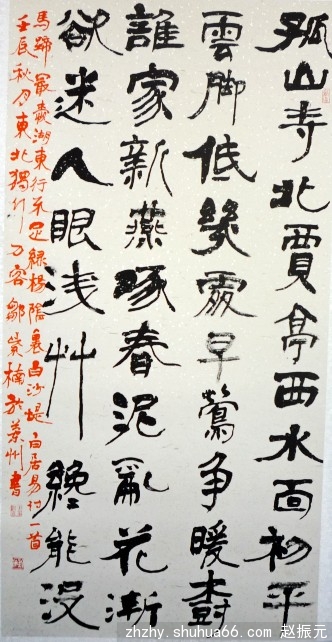 孤山寺北賈亭西水面初平
雲脚低幾處早鶯争暖樹
誰家新燕啄春泥亂花漸
欲迷人眼浅艸纔能没
馬蹄最愛湖東行不足緑楊陰裏白沙堤白居易詩一首
壬辰秋月東北獨行刀客鄒紫楠於蘇州書
zhzhy.shuhua66.com 赵振元